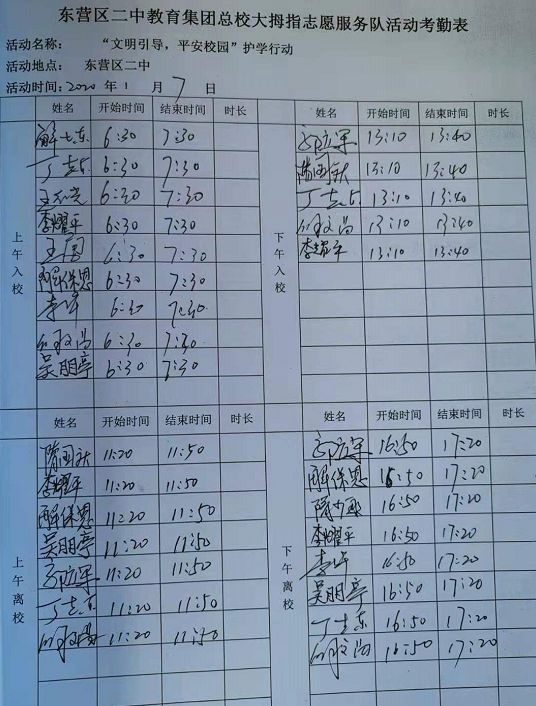 东营区二中教育集团总校大拇指志愿服务队活动考勤表
活动名称： “文明引导，平安校园”护学行动
活动地点： 东营区二中
活动时间：2020 年 1 月 7 日
姓名 开始时间 结束时间 时长 姓名 开始时间 结束时间 时长
上午入校
6:30 7:30
丁志东 6:30 7:30
6:30 7:30
李耀平 6:30 7:30
王国 6:30 7:30
解保恩 6:30 7:30
李峰 6:30 7:30
6:30 7:30
吴朋亭 6:30 7:30
下午入校
13:10 13:40
隋国新 13:10 13:40
丁志东 13:10 13:40
13:10 13:40
李耀平 13:10 13:40
姓名 开始时间 结束时间 时长 姓名 开始时间 结束时间 时长
上午离校
隋国新 11:20 11:50
李耀平 11:20 11:50
解保恩 11:20 11:50
吴朋亭 11:20 11:50
11:20 11:50
丁志东 11:20 11:50
11:20 11:50
下午离校
16:50 17:20
解保恩 16:50 17:20
16:50 17:20
李耀平 16:50 17:20
李峰 16:50 17:20
吴朋亭 16:50 17:20
丁志东 16:50 17:20
16:50 17:20